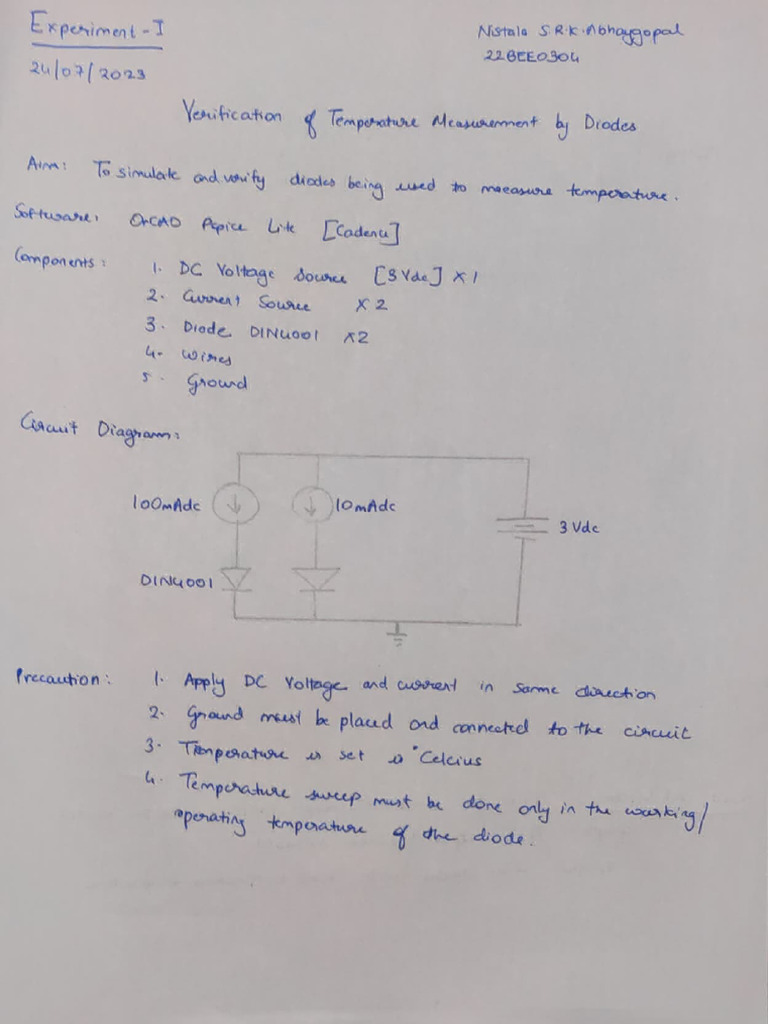 Experiment - I
Nistala S.R.K. Abhaygopal
24/07/2023
22BEE0304
Verification of Temperature Measurement by Diodes
Aim: To simulate and verify diodes being used to measure temperature.
Software: OrCAD Pspice Lite [Cadence]
Components:
1. DC Voltage source [3 Vdc] x 1
2. Current Source x 2
3. Diode D1N4001 x2
4. Wires
5. Ground
Circuit Diagram:
100mAdc
10mAdc
3 Vdc
D1N4001
Precaution: 1. Apply DC Voltage and current in same direction
2. Ground must be placed and connected to the circuit
3. Temperature is set is °Celcius
4. Temperature sweep must be done only in the working/
operating temperature of the diode.